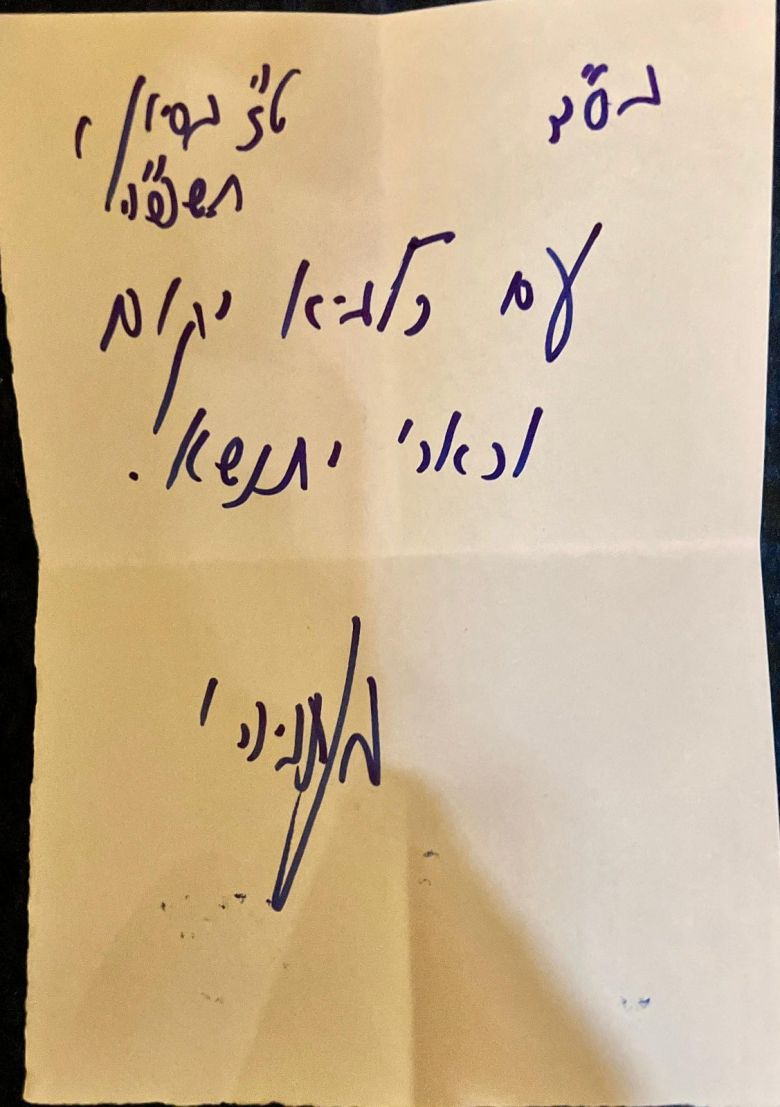 בס"ד
ט"ז בסיון,
תשפ"ה
עם כלביא יקום
וכארי יתנשא.
ב נתניהו